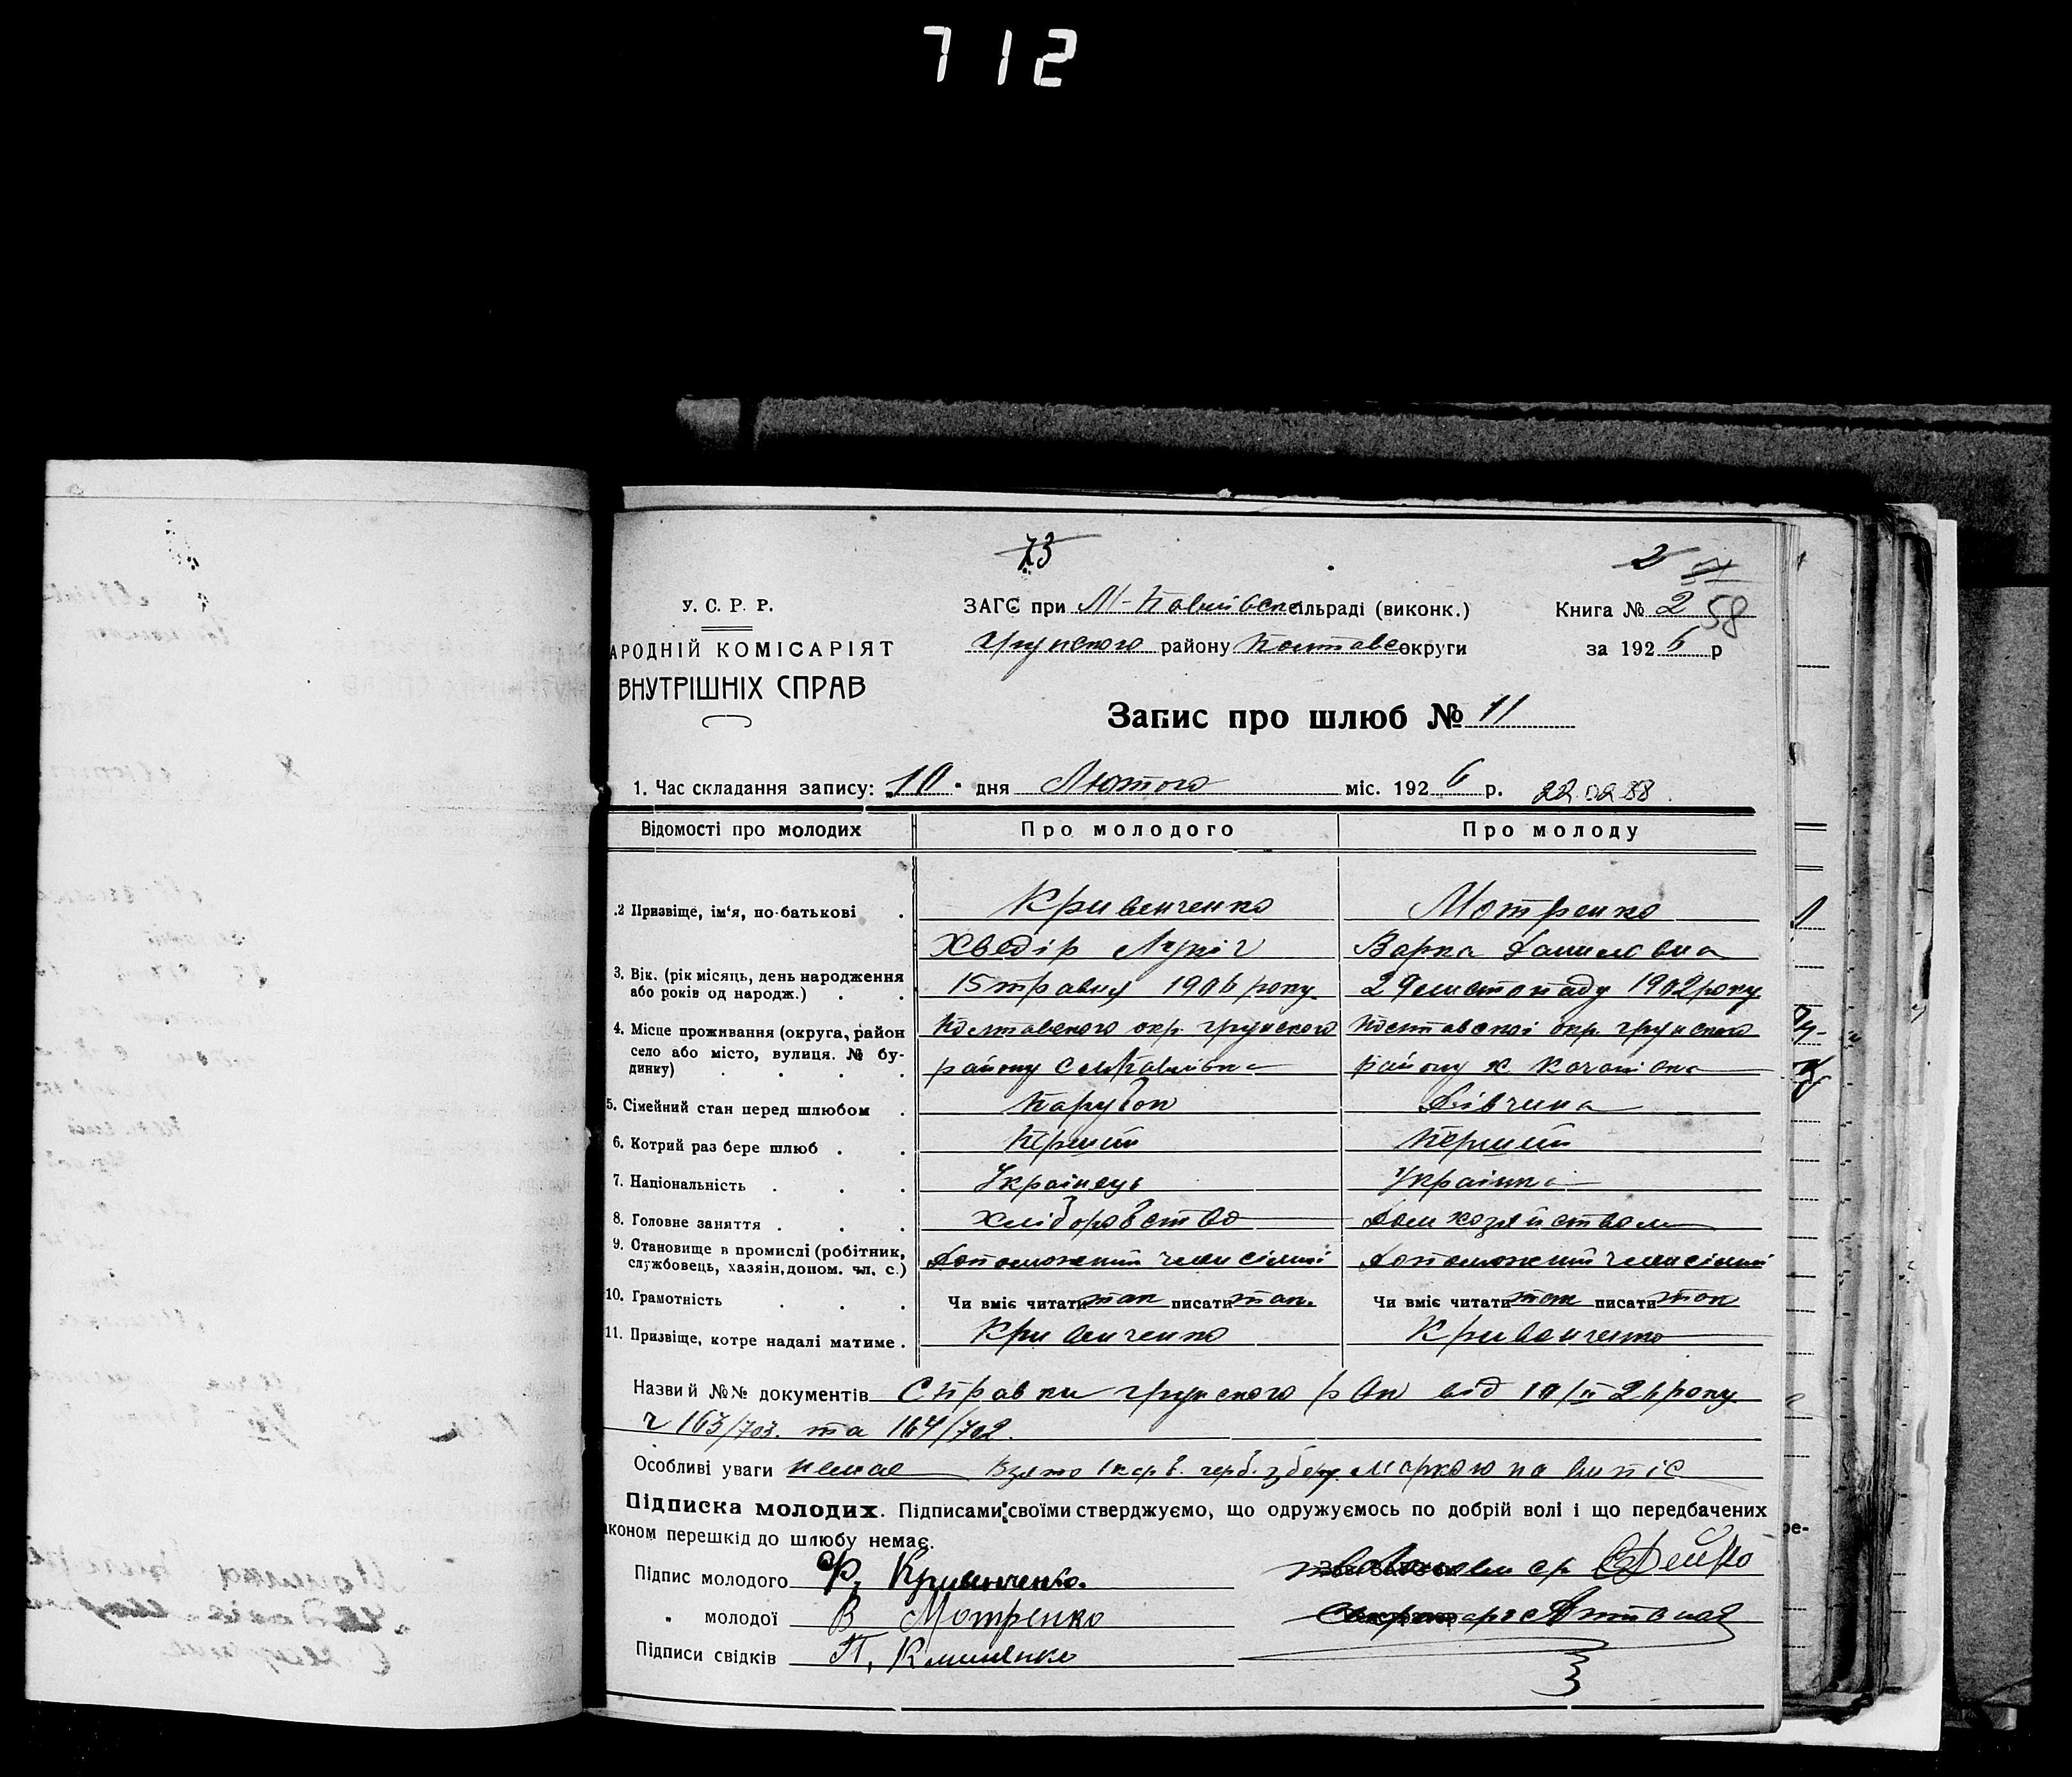 712
73
2 57
У. С. Р. Р.
ЗАГС при М-Павлівск сільраді (виконк.)
Книга № 2 58
АРОДНІЙ КОМІСАРІЯТ
Грунского району Полтавс округи
за 1926 р
ВНУТРІШНІХ СПРАВ
Запис про шлюб № 11
1. Час складання запису: „10" дня Лютого міс. 1926 р. 22.02.88.
Відомості про молодих Про молодого Про молоду
.2 Призвіще, ім'я, по-батькові . Кривенченко Мотренко
Хведір Лукіч Варка Даниловна
3. Вік. (рік місяць, день народження 15 травня 1906 року. 29 листопаду 1902 року
або років од народж.) . .
4. Місце проживання (округа, район Полтавского окр. Грунского Полтавскоі окр. Грунского
село або місто, вулиця. № бу- району с М Павлівка району х Качанівка
динку) . . . .
5. Сімейний стан перед шлюбом . Парубок Дівчина
6. Котрий раз бере шлюб . . Перший Перший
7. Національність . . . Українець Українка
8. Головне заняття . . . Хліборобство Дом хозяйством
9. Становище в промислі (робітник, Допоможний член сімьі Допоможний член сімьі
службовець, хазяін, допом. чл. с.)
10. Грамотність . . . Чи вміє читати так писати так. Чи вміє читати так писати так
11. Призвіще, котре надалі матиме . Кривенченко Кривенченко
Назви й №№ документів Справки Грунского рВк від 10/II 26 року
ч 163/703. та 164/702.
Особливі уваги немае Взято 1 карб. герб. збору маркою на випіс
Підписка молодих. Підписами своїми стверджуємо, що одружуємось по добрій волі і що передбачених
аконом перешкід до шлюбу немає.
Підпис молодого Ф. Кривенченко.
„ молодої В Мотренко
Підписи свідків П. Клименко